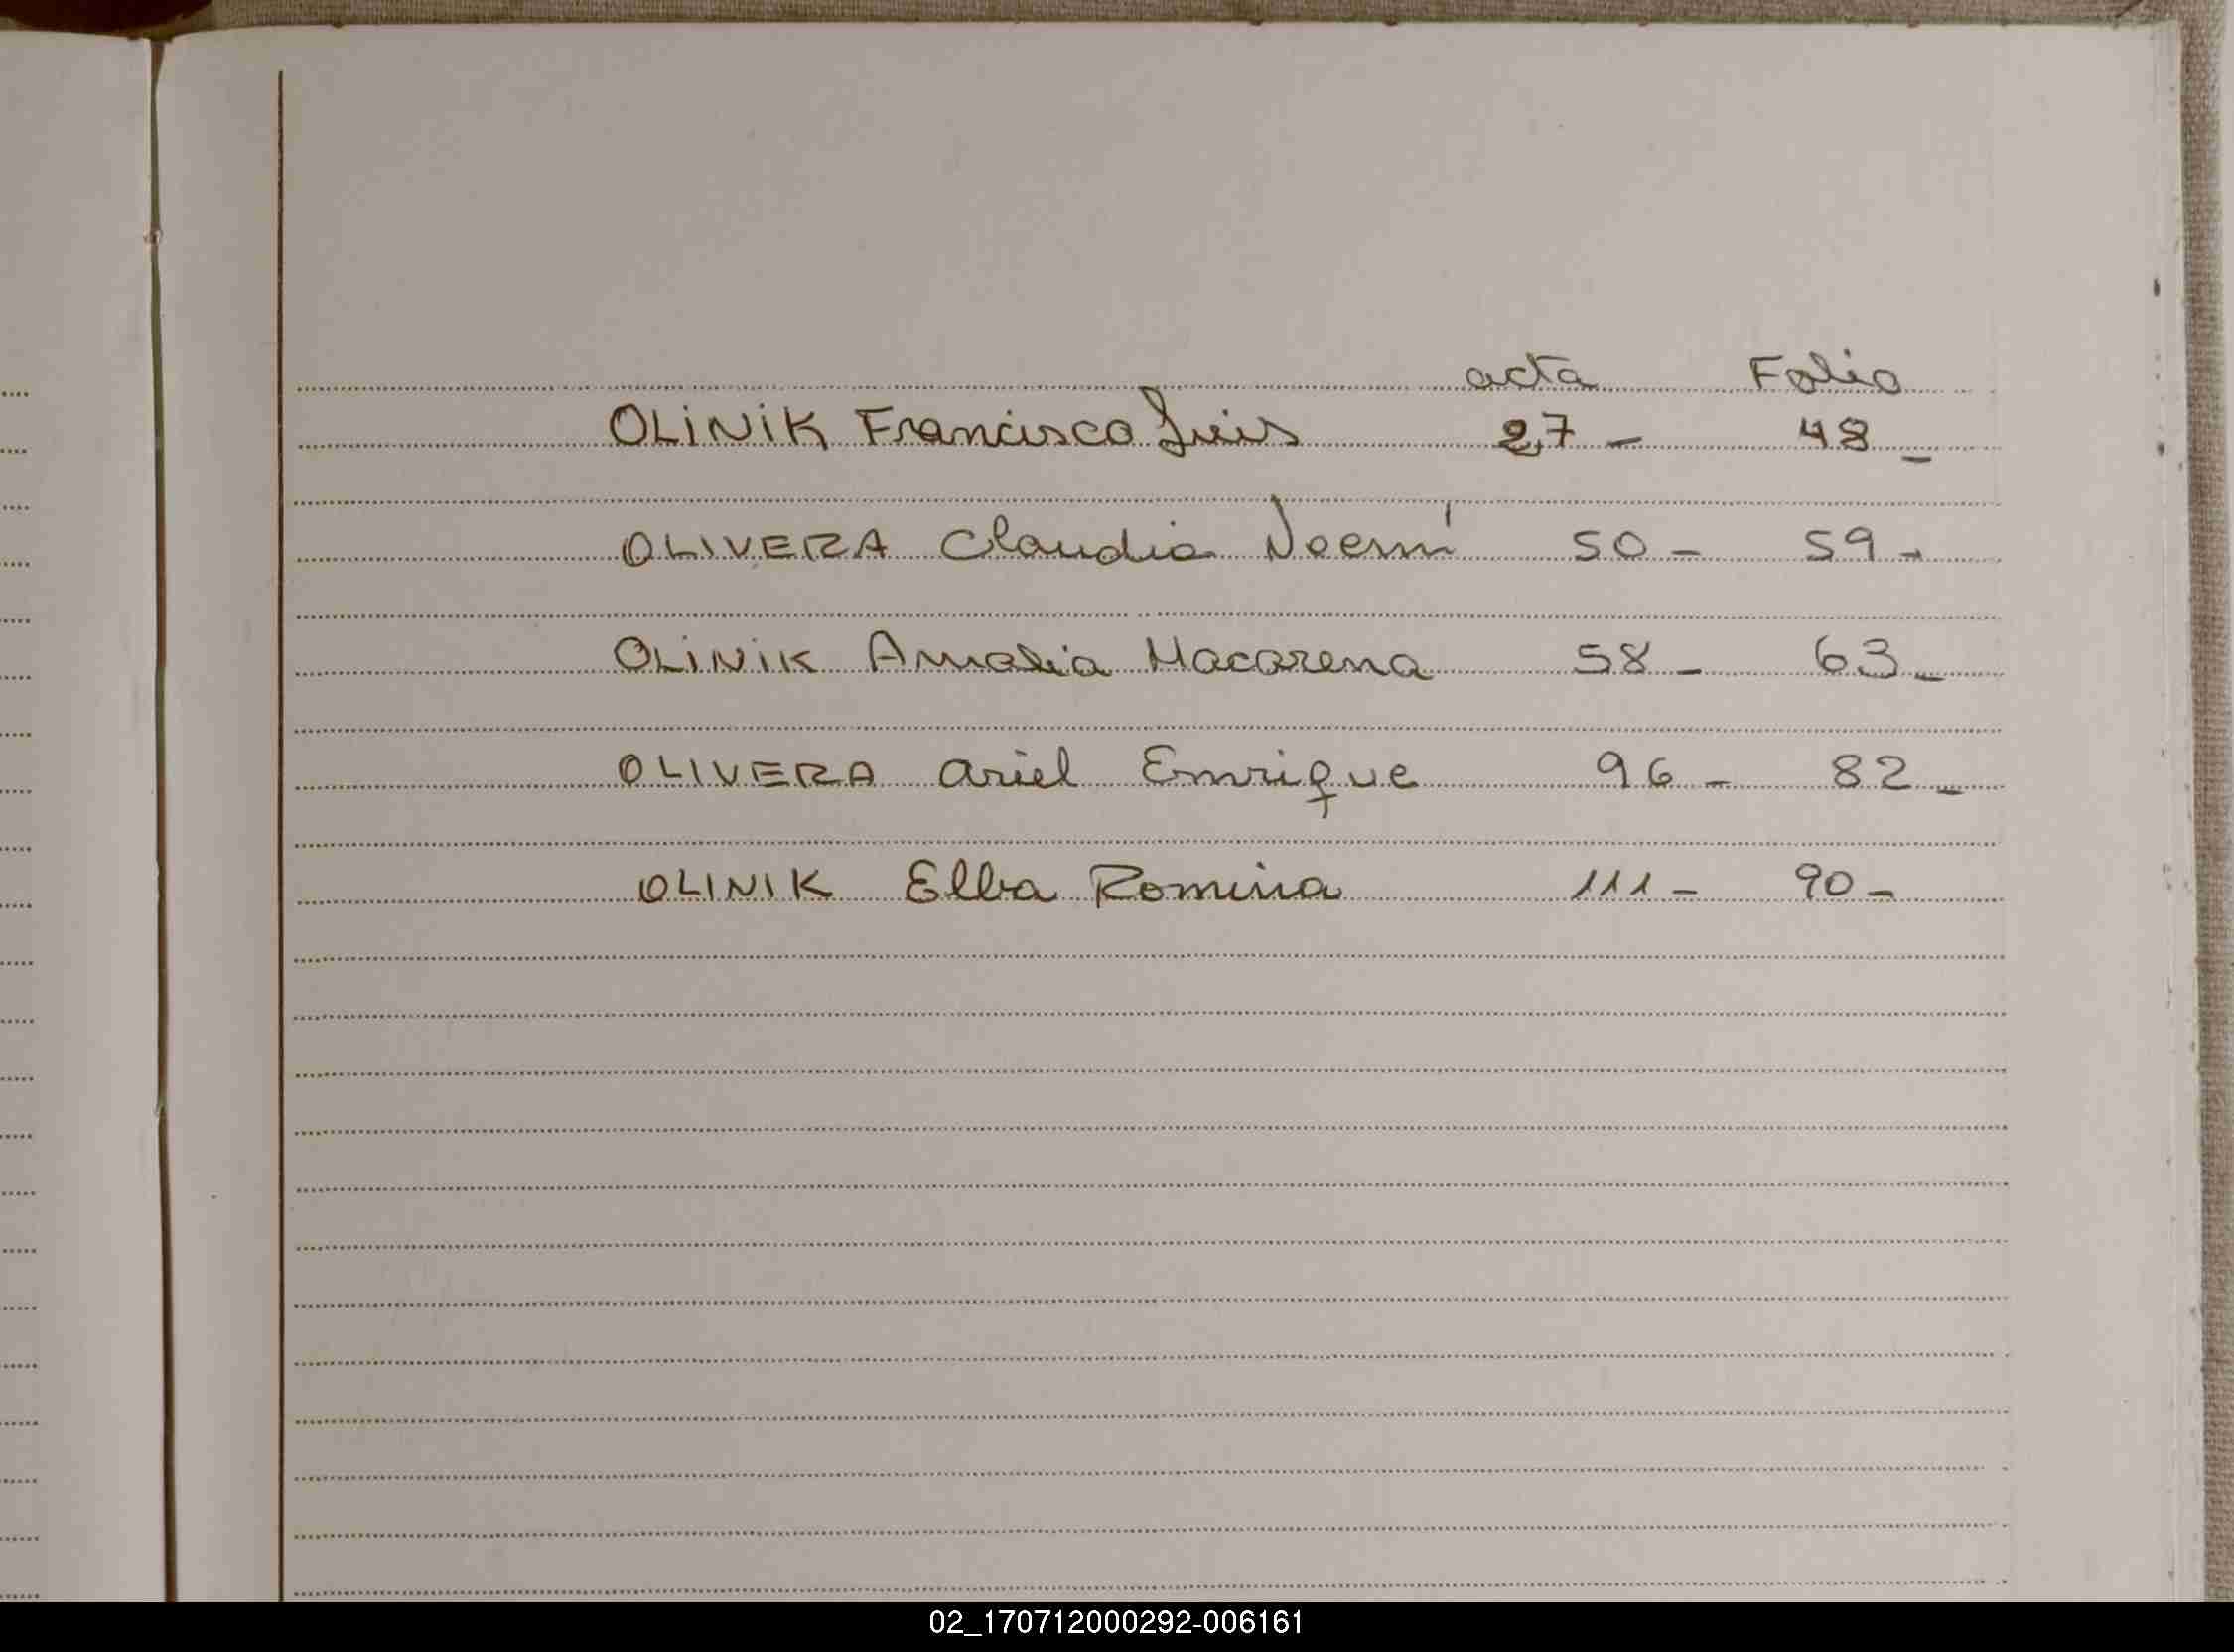 acta Folio
OLINIK Francisco Luis 27 - 48 -
OLIVERA Claudia Noemí 50 - 59 -
OLINIK Amalia Macarena 58 - 63 -
OLIVERA Ariel Enrique 96 - 82 -
OLINIK Elba Romina 111 - 90 -
02_170712000292-006161